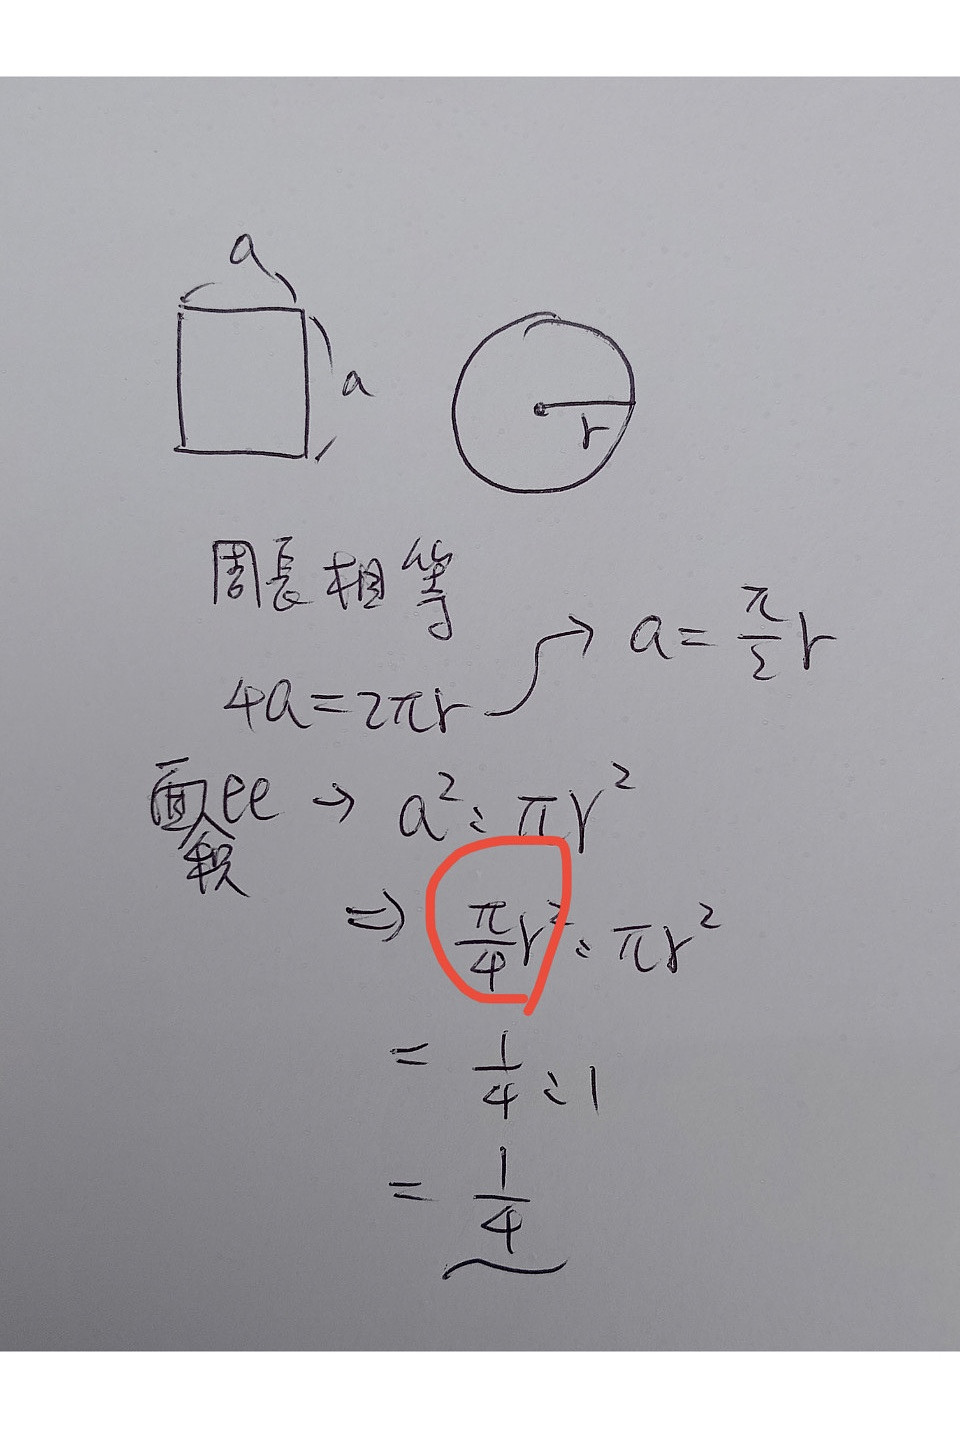 a
a
r
周長相等
4a=2πr → a=π/2 r
面積比 → a²:πr²
⇒ π/4 r²:πr²
= 1/4:1
= 1/4